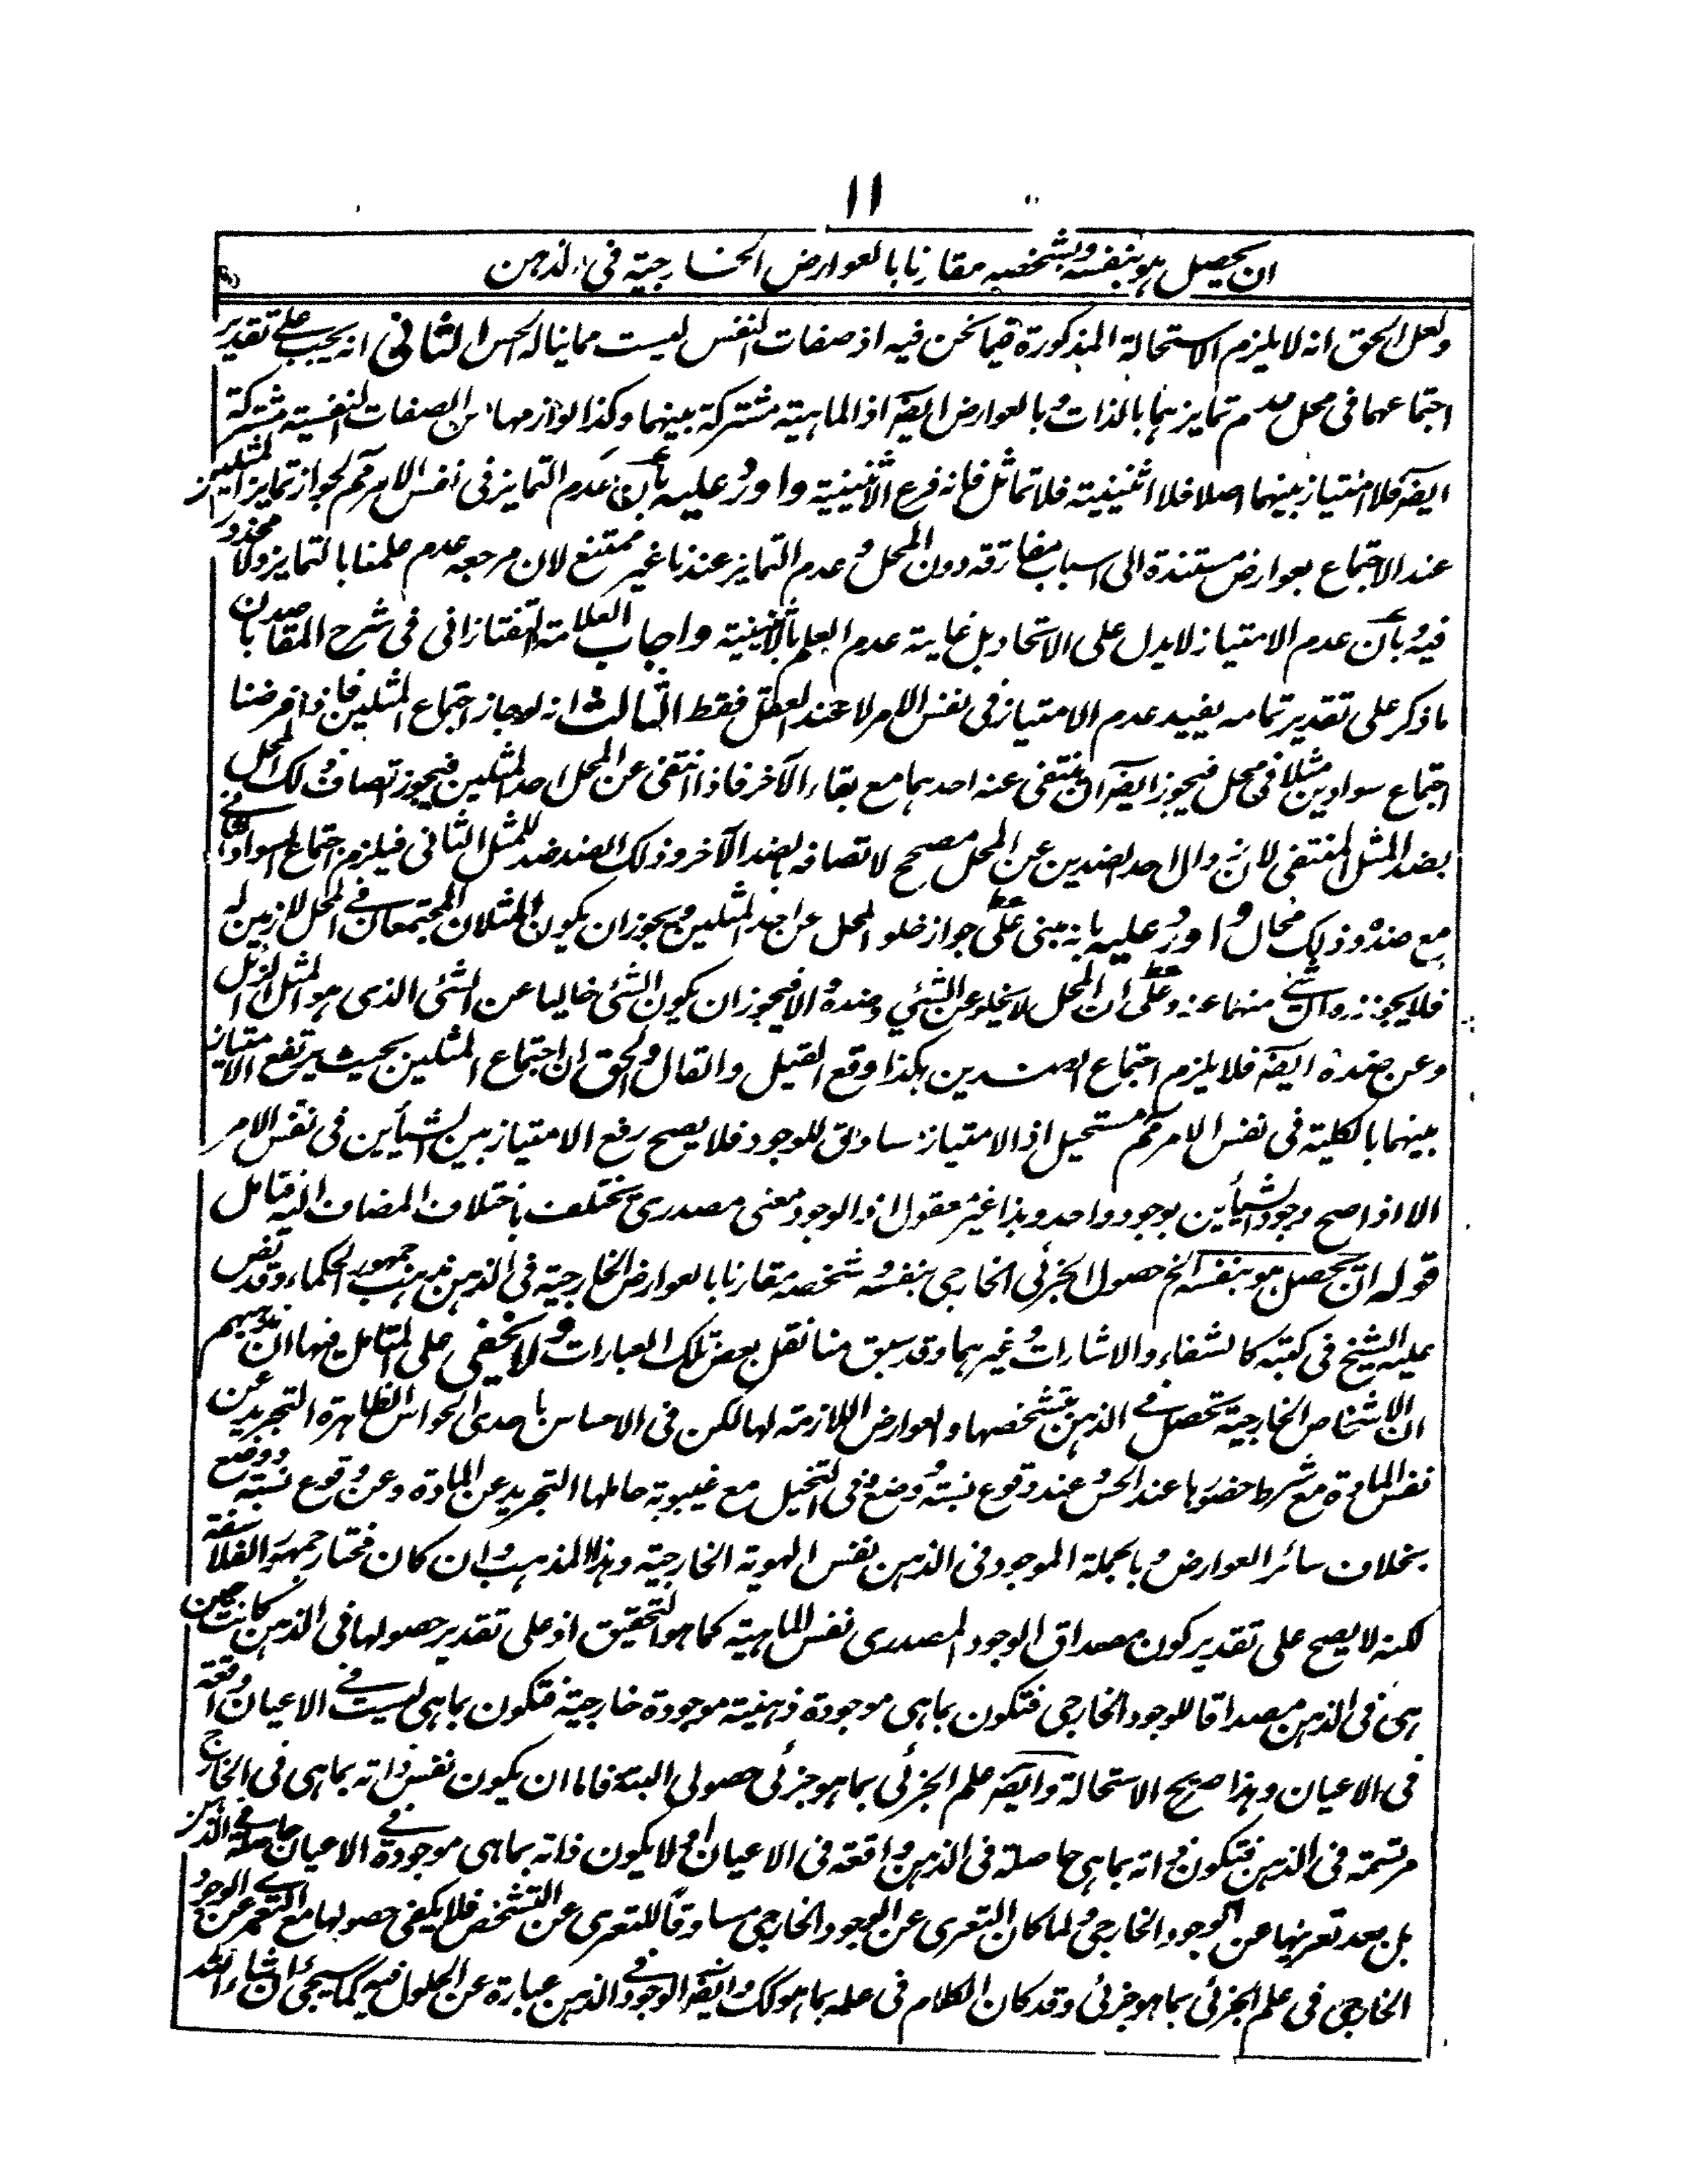 ١١
ان يحصل هو بنفسه وبشخصه مقارنا بالعوارض الخارجية في الذهن
ولعل الحق انه لا يلزم الاستحالة المذكورة فيما نحن فيه اذ صفات النفس ليست مما يناله الحس الثاني انه يجب على تقدير
اجتماعهما في محل عدم تمايزهما بالذات وبالعوارض ايضه اذ الماهية مشتركة بينهما وكذا لوازمها من الصفات النفسية مشتركة
ايضه فلا امتياز بينهما اصلا فلا اثنينية فلا تماثل فانه فرع الاثنينية واورد عليه بأن عدم التمايز في نفس الامر مم لجواز تمايز المثلين
عند الاجتماع بعوارض مستندة الى اسباب مفارقه دون المحل وعدم التمايز عندنا غير ممتنع لان مرجعه عدم علمنا بالتمايز ولا محذور
فيه وبأن عدم الامتياز لا يدل على الاتحاد بل غاية عدم العلم بالاثنينية واجاب العلامة التفتازاني في شرح المقاصد بان
ما ذكر على تقدير تمامه يفيد عدم الامتياز في نفس الامر لا عند العقل فقط الثالث انه لو جاز اجتماع المثلين فاذا فرضنا
اجتماع سوادين مثلا في محل فيجوز ايضه ان ينتفي عنه احدهما مع بقاء الآخر فاذا انتفى عن المحل احد المثلين فيجوز اتصاف ذلك المحل
بضد المثل المنتفي لان زوال احد الضدين عن المحل مصحح لاتصافه بالضد الآخر وذلك الضد ضد للمثل الثاني فيلزم اجتماع السواد الثاني
مع ضده وذلك محال واورد عليه بانه مبني على جواز خلو المحل عن احد المثلين ويجوز ان يكون المثلان المجتمعان في المحل لازمين له
فلا يجوز زوال شيء منهما عنه وعلى ان المحل لا يخلو عن الشيء وضده والا فيجوز ان يكون الشئ خاليا عن الشئ الذي هو المثل الزائل
وعن ضده ايضه فلا يلزم اجتماع الضدين هكذا وقع القيل والقال والحق ان اجتماع المثلين بحيث يرتفع الامتياز
بينهما بالكلية في نفس الامر مم مستحيل اذ الامتياز مساوق للوجود فلا يصح رفع الامتياز بين الشيأين في نفس الامر
الا اذا صح وجود الشيأين بوجود واحد وهذا غير معقول اذ الوجود معنى مصدري يختلف باختلاف المضاف اليه فتامل
قوله ان يحصل هو بنفسه الخ حصول الجزئي الخارجي بنفسه وشخصه مقارنا بالعوارض الخارجية في الذهن مذهب جمهور الحكماء وقد نص
عليه الشيخ في كتبه كالشفاء والاشارات وغيرهما وقد سبق منا نقل بعض تلك العبارات ولا يخفى على المتامل فيها ان مذهبهم
ان الاشخاص الخارجية تحصل في الذهن بتشخصها والعوارض اللازمة لها لكن في الاحساس باحدى الحواس الظاهرة التجريد عن
نفس المادة مع شرط حضورها عند الحس وعند وقوع نسبة وضع وفي التخيل مع غيبوبة حاملها التجريد عن المادة وعن وقوع نسبة ووضع
بخلاف سائر العوارض وبالجملة الموجود في الذهن نفس الهوية الخارجية وهذا المذهب وان كان مختار جمهور الفلاسفة
لكنه لا يصح على تقدير كون مصداق الوجود المصدري نفس الماهية كما هو التحقيق اذ على تقدير حصولها في الذهن كانت من
هي في الذهن مصداقا للوجود الخارجي فتكون بما هي موجودة ذهنية موجودة خارجية فتكون بما هي ليست في الاعيان واقعة
في الاعيان وهذا صريح الاستحالة وايضه علم الجزئي بما هو جزئي حصولي البتة فاما ان يكون نفس ذاته بما هي في الخارج
مرتسمة في الذهن فتكون ذاته بما هي حاصلة في الذهن واقعة في الاعيان او لا يكون ذاته بما هي موجودة في الاعيان حاصلة في الذهن
بل بعد تعريها عن الوجود الخارجي ولما كان التعري عن الوجود الخارجي مساوقا للتعري عن التشخص فلا يكفي حصولها مع التعري عن الوجود
الخارجي في علم الجزئي بما هو جزئي وقد كان الكلام في علمه بما هو كك وايضه الوجود في الذهن عبارة عن الحلول فيه كما سيجئ ان شاء الله